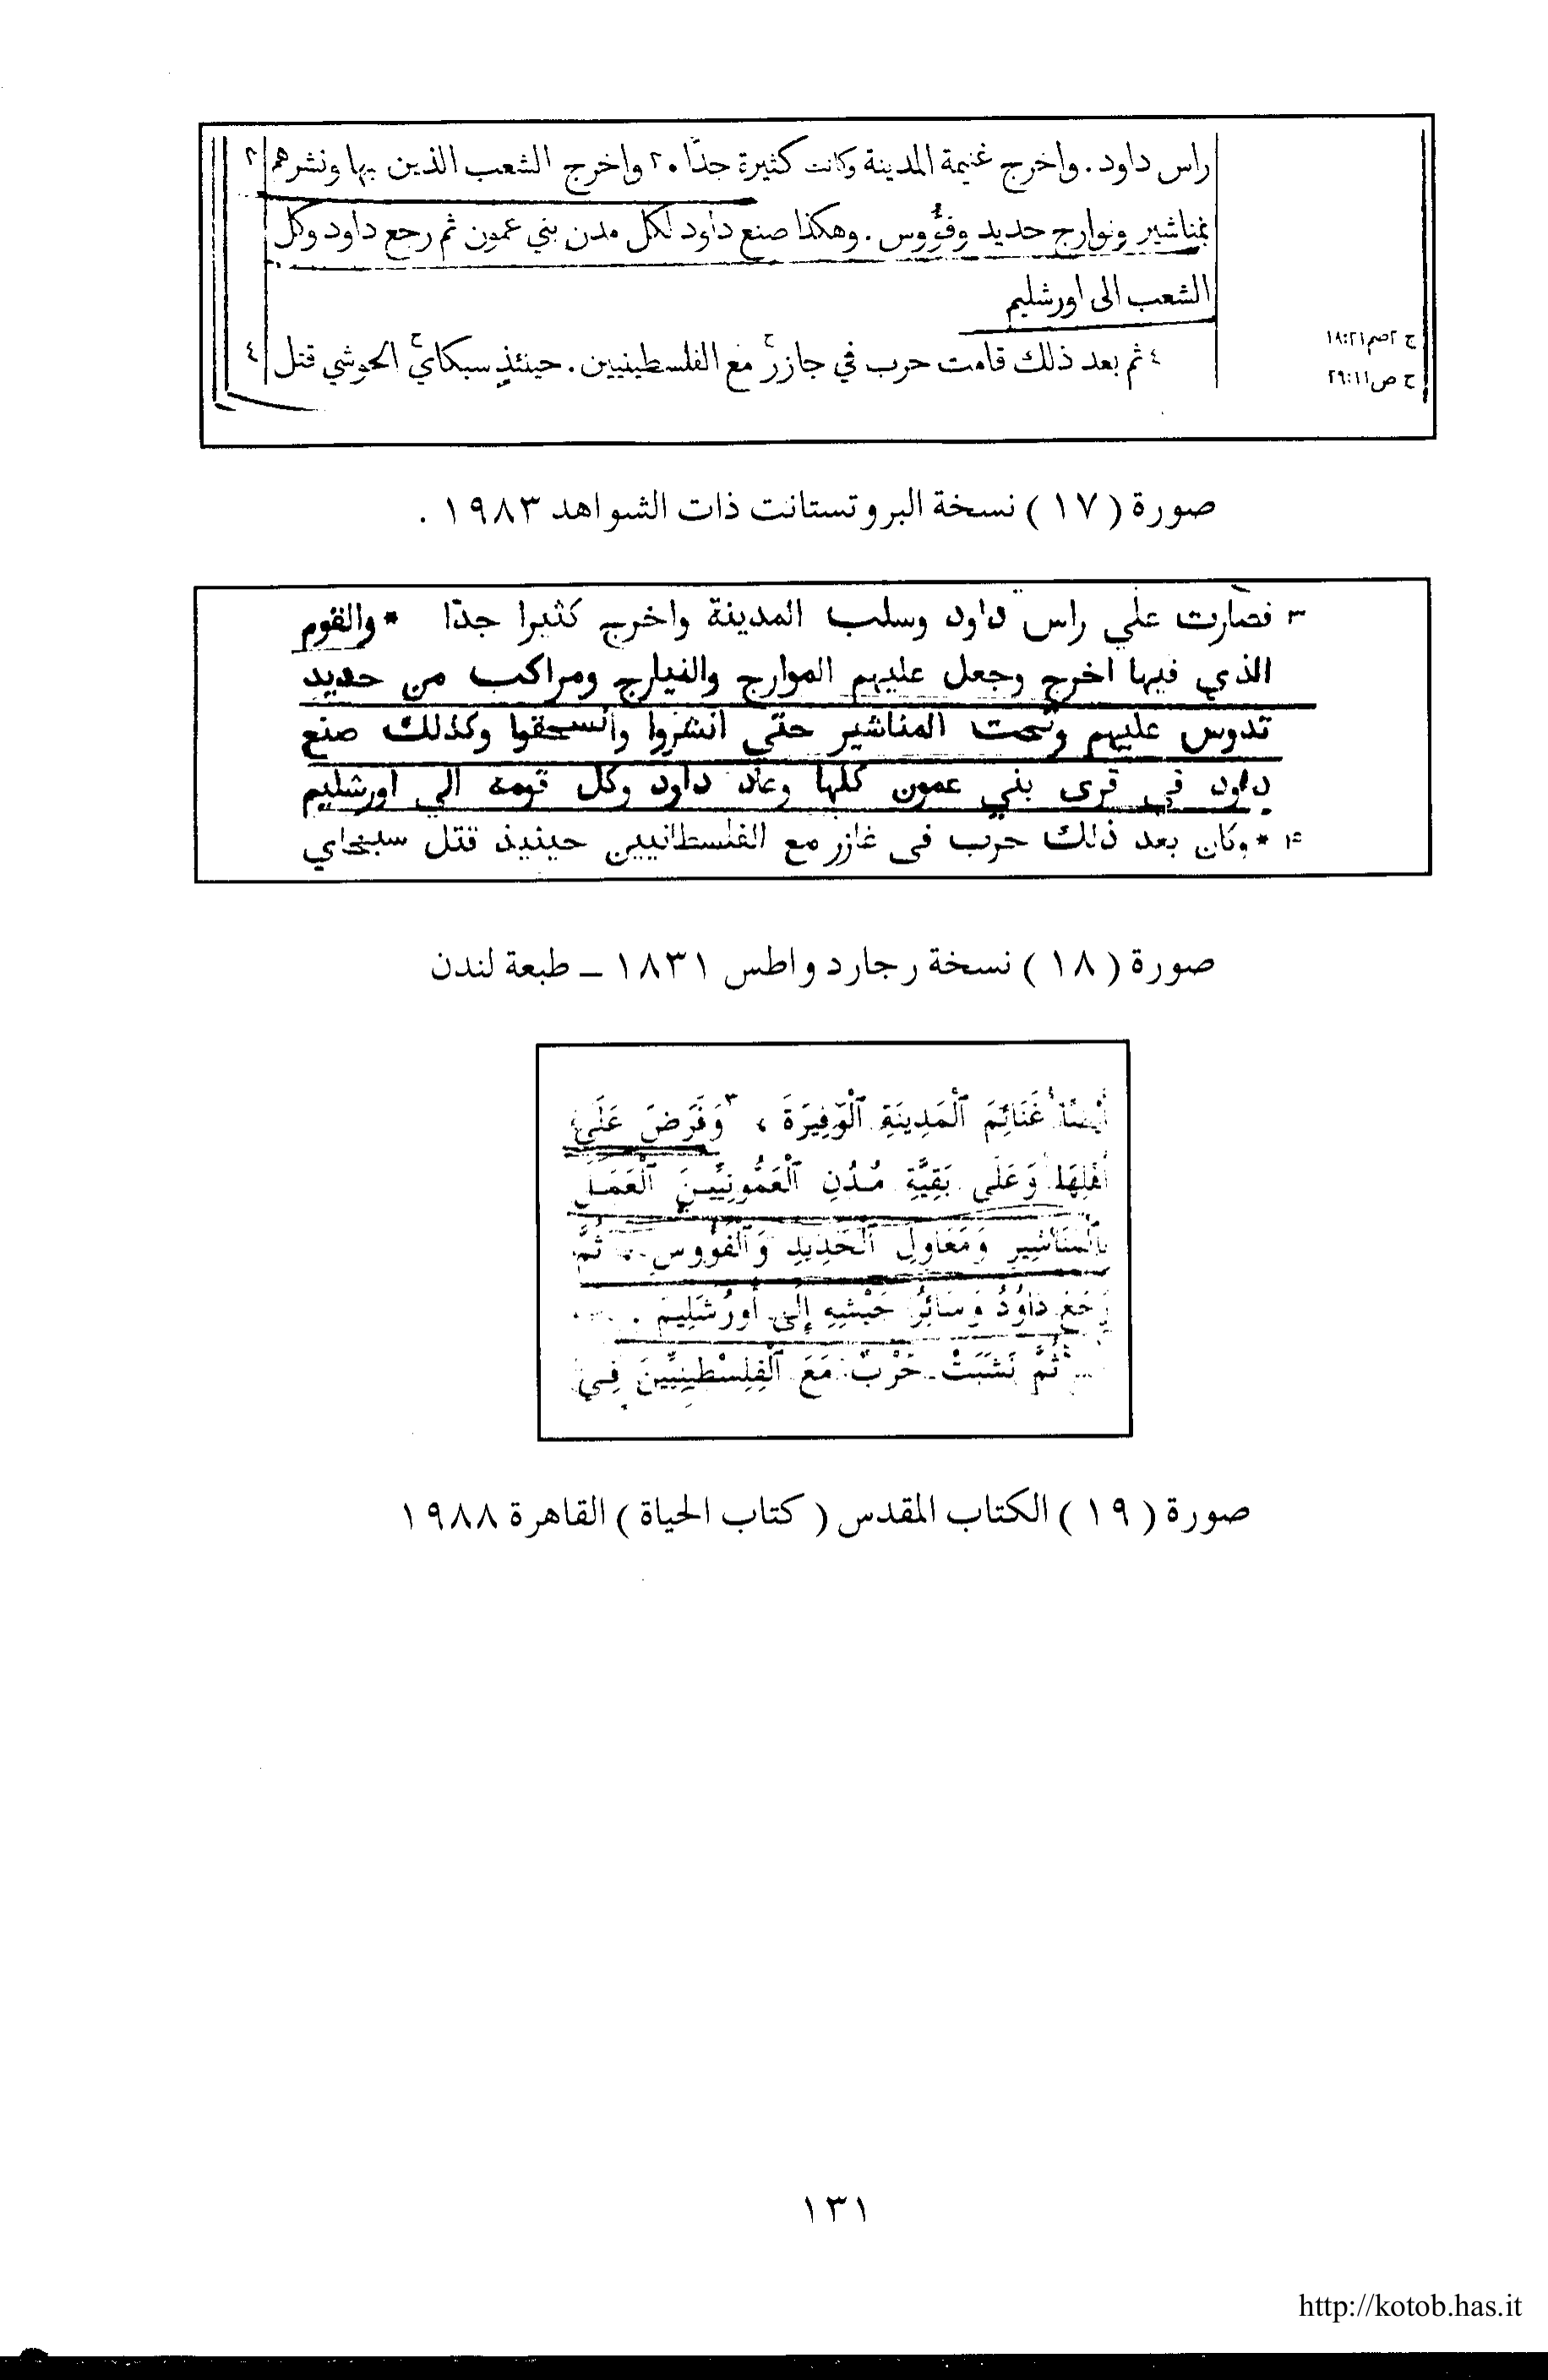 راس داود. واخرج غنيمة المدينة وكانت كثيرة جدًّا ٠ ٢ واخرج الشعب الذين بها ونشرهم ٢
بمناشير ونوارج حديد وفؤوس. وهكذا صنع داود لكل مدن بني عمون ثم رجع داود وكل
الشعب الى اورشليم
ج ٢صم١٨:٢١
٤ ثم بعد ذلك قامت حرب في جازر مع الفلسطينيين. حينئذٍ سبكاي الحوشي قتل ٤
ح ص٢٩:١١
صورة ( ١٧ ) نسخة البروتستانت ذات الشواهد ١٩٨٣ .
٣ فصارت علي راس داود وسلب المدينة واخرج كثيرا جدّا * والقوم
الذي فيها اخرج وجعل عليهم الموارج والفيارج ومراكب من حديد
تدوس عليهم وتحت المناشير حتي انشزوا وانسحقوا وكذلك صنع
داود في قرى بني عمون كلها وعاد داود وكل قومه الي اورشليم
۴ * وكان بعد ذلك حرب في غازر مع الفلسطانيين حينيذ قتل سبخاي
صورة ( ١٨ ) نسخة رجارد واطس ١٨٣١ ــ طبعة لندن
أَيْضًا غَنَائِمَ ٱلْمَدِينَةِ ٱلْوَفِيرَةَ ، ٣ وَفَرَضَ عَلَى
أَهْلِهَا وَعَلَى بَقِيَّةِ مُدُنِ ٱلْعَمُّونِيِّينَ ٱلْعَمَلَ
بِٱلْمَنَاشِيرِ وَمَعَاوِلِ ٱلْحَدِيدِ وَٱلْفُؤُوسِ . ثُمَّ
رَجَعَ دَاوُدُ وَسَائِرُ جَيْشِهِ إِلَى أُورُشَلِيمَ .
ثُمَّ نَشَبَتْ حَرْبٌ مَعَ ٱلْفِلِسْطِينِيِّينَ فِي
صورة ( ١٩ ) الكتاب المقدس ( كتاب الحياة ) القاهرة ١٩٨٨
١٣١
http://kotob.has.it